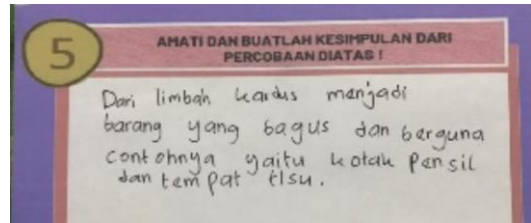 5
AMATI DAN BUATLAH KESIMPULAN DARI
PERCOBAAN DIATAS !
Dari limbah kardus menjadi
barang yang bagus dan berguna
contohnya yaitu kotak pensil
dan tempat tisu.